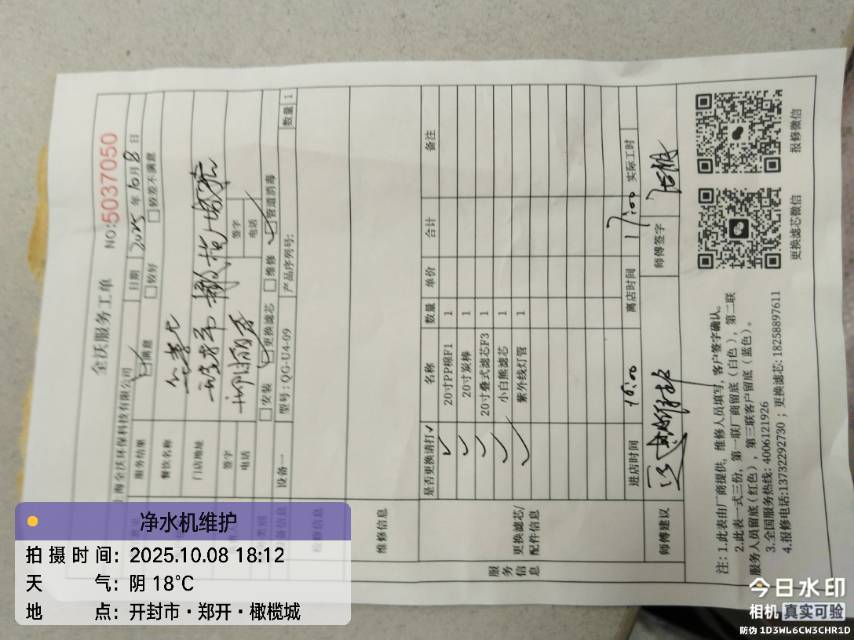 全沃服务工单
NO:5037050
上海全沃环保科技有限公司
日期 2025年10月8日
服务结果 满意 较好 较差不满意
餐饮名称
门店地址
签字
电话
签字
电话
安装 更换滤芯 维修 管道消毒
设备一 型号:QG-U4-09 产品序列号: 数量 1
维修信息
是否更换请打✓ 名称 数量 单价 合计 备注
✓ 20寸PP棉F1 1
✓ 20寸炭棒 1
✓ 20寸叠式滤芯F3 1
✓ 小白熊滤芯 1
✓ 紫外线灯管 1
更换滤芯/配件信息
服务信息
进店时间 16:00 离店时间 17:00 实际工时
师傅建议 师傅签字
注:1.此表由厂商提供,维修人员填写,客户签字确认。
2.此表一式三份,第一联厂商留底(白色),第二联
服务人员留底(红色),第三联客户留底(蓝色)。
3.全国服务热线:4006121926
4.报修电话:13732292730;更换滤芯:18258897611
更换滤芯微信
报修微信
净水机维护
拍摄时间:2025.10.08 18:12
天气:阴 18℃
地点:开封市·郑开·橄榄城
今日水印
相机 真实可验
防伪 1D3WL6CW3CHR1D